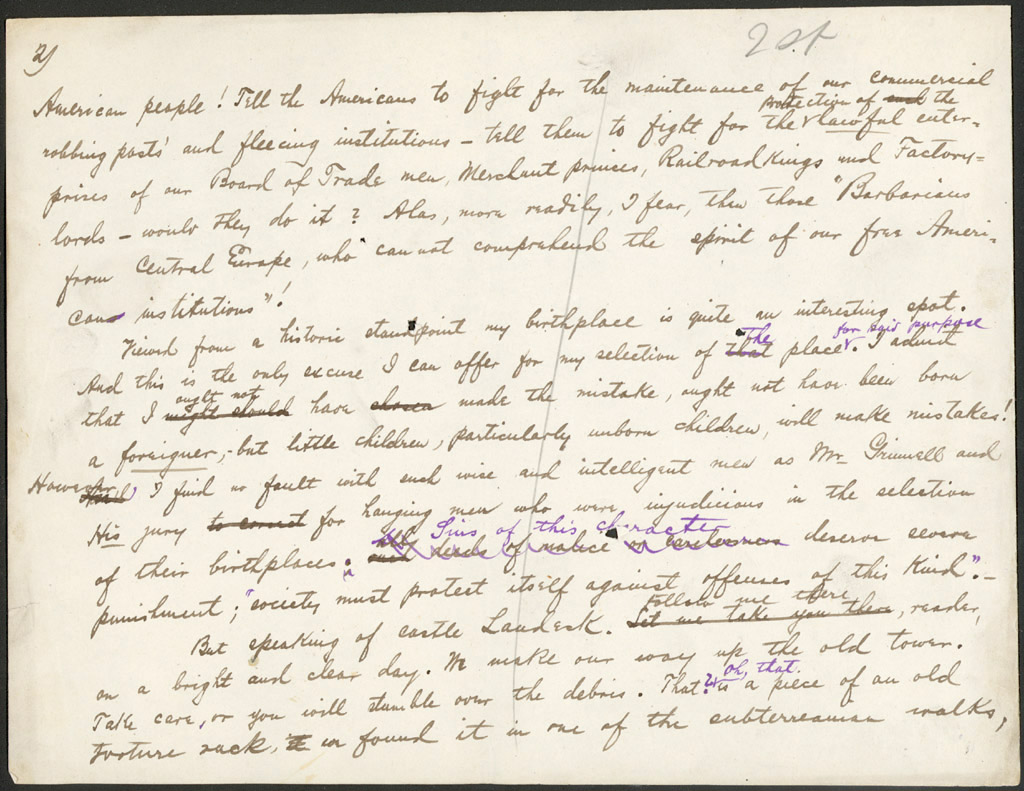 2)
2 st
American people! Tell the Americans to fight for the maintenance of our commercial
robbing posts' and fleecing institutions – tell them to fight for the protection of such the lawful enter-
prises of our Board of Trade men, Merchant princes, Railroad Kings and Factory-
lords – would they do it? Alas, more readily, I fear, than those "Barbarians
from Central Europe, who cannot comprehend the spirit of our free Ameri-
can institutions"!
Viewed from a historic standpoint my birthplace is quite an interesting spot.
And this is the only excuse I can offer for my selection of that The place for said purpose. I admit
that I might should ought not have chosen made the mistake, ought not have been born
a foreigner, but little children, particularly unborn children, will make mistakes!
However, I find no fault with such wise and intelligent men as Mr Grinnell and
His jury to correct for hanging men who were injudicious in the selection
of their birthplaces. such deeds of malice or carelessness Sins of this character deserve severe
punishment; "society must protest itself against offenses of this Kind". –
But speaking of castle Landeck. Let me take you there Follow me there, reader,
on a bright and clear day. We make our way up the old tower.
Take care, or you will stumble over the debris. That? oh, that is a piece of an old
torture rack, we found it in one of the subterreanean walks,